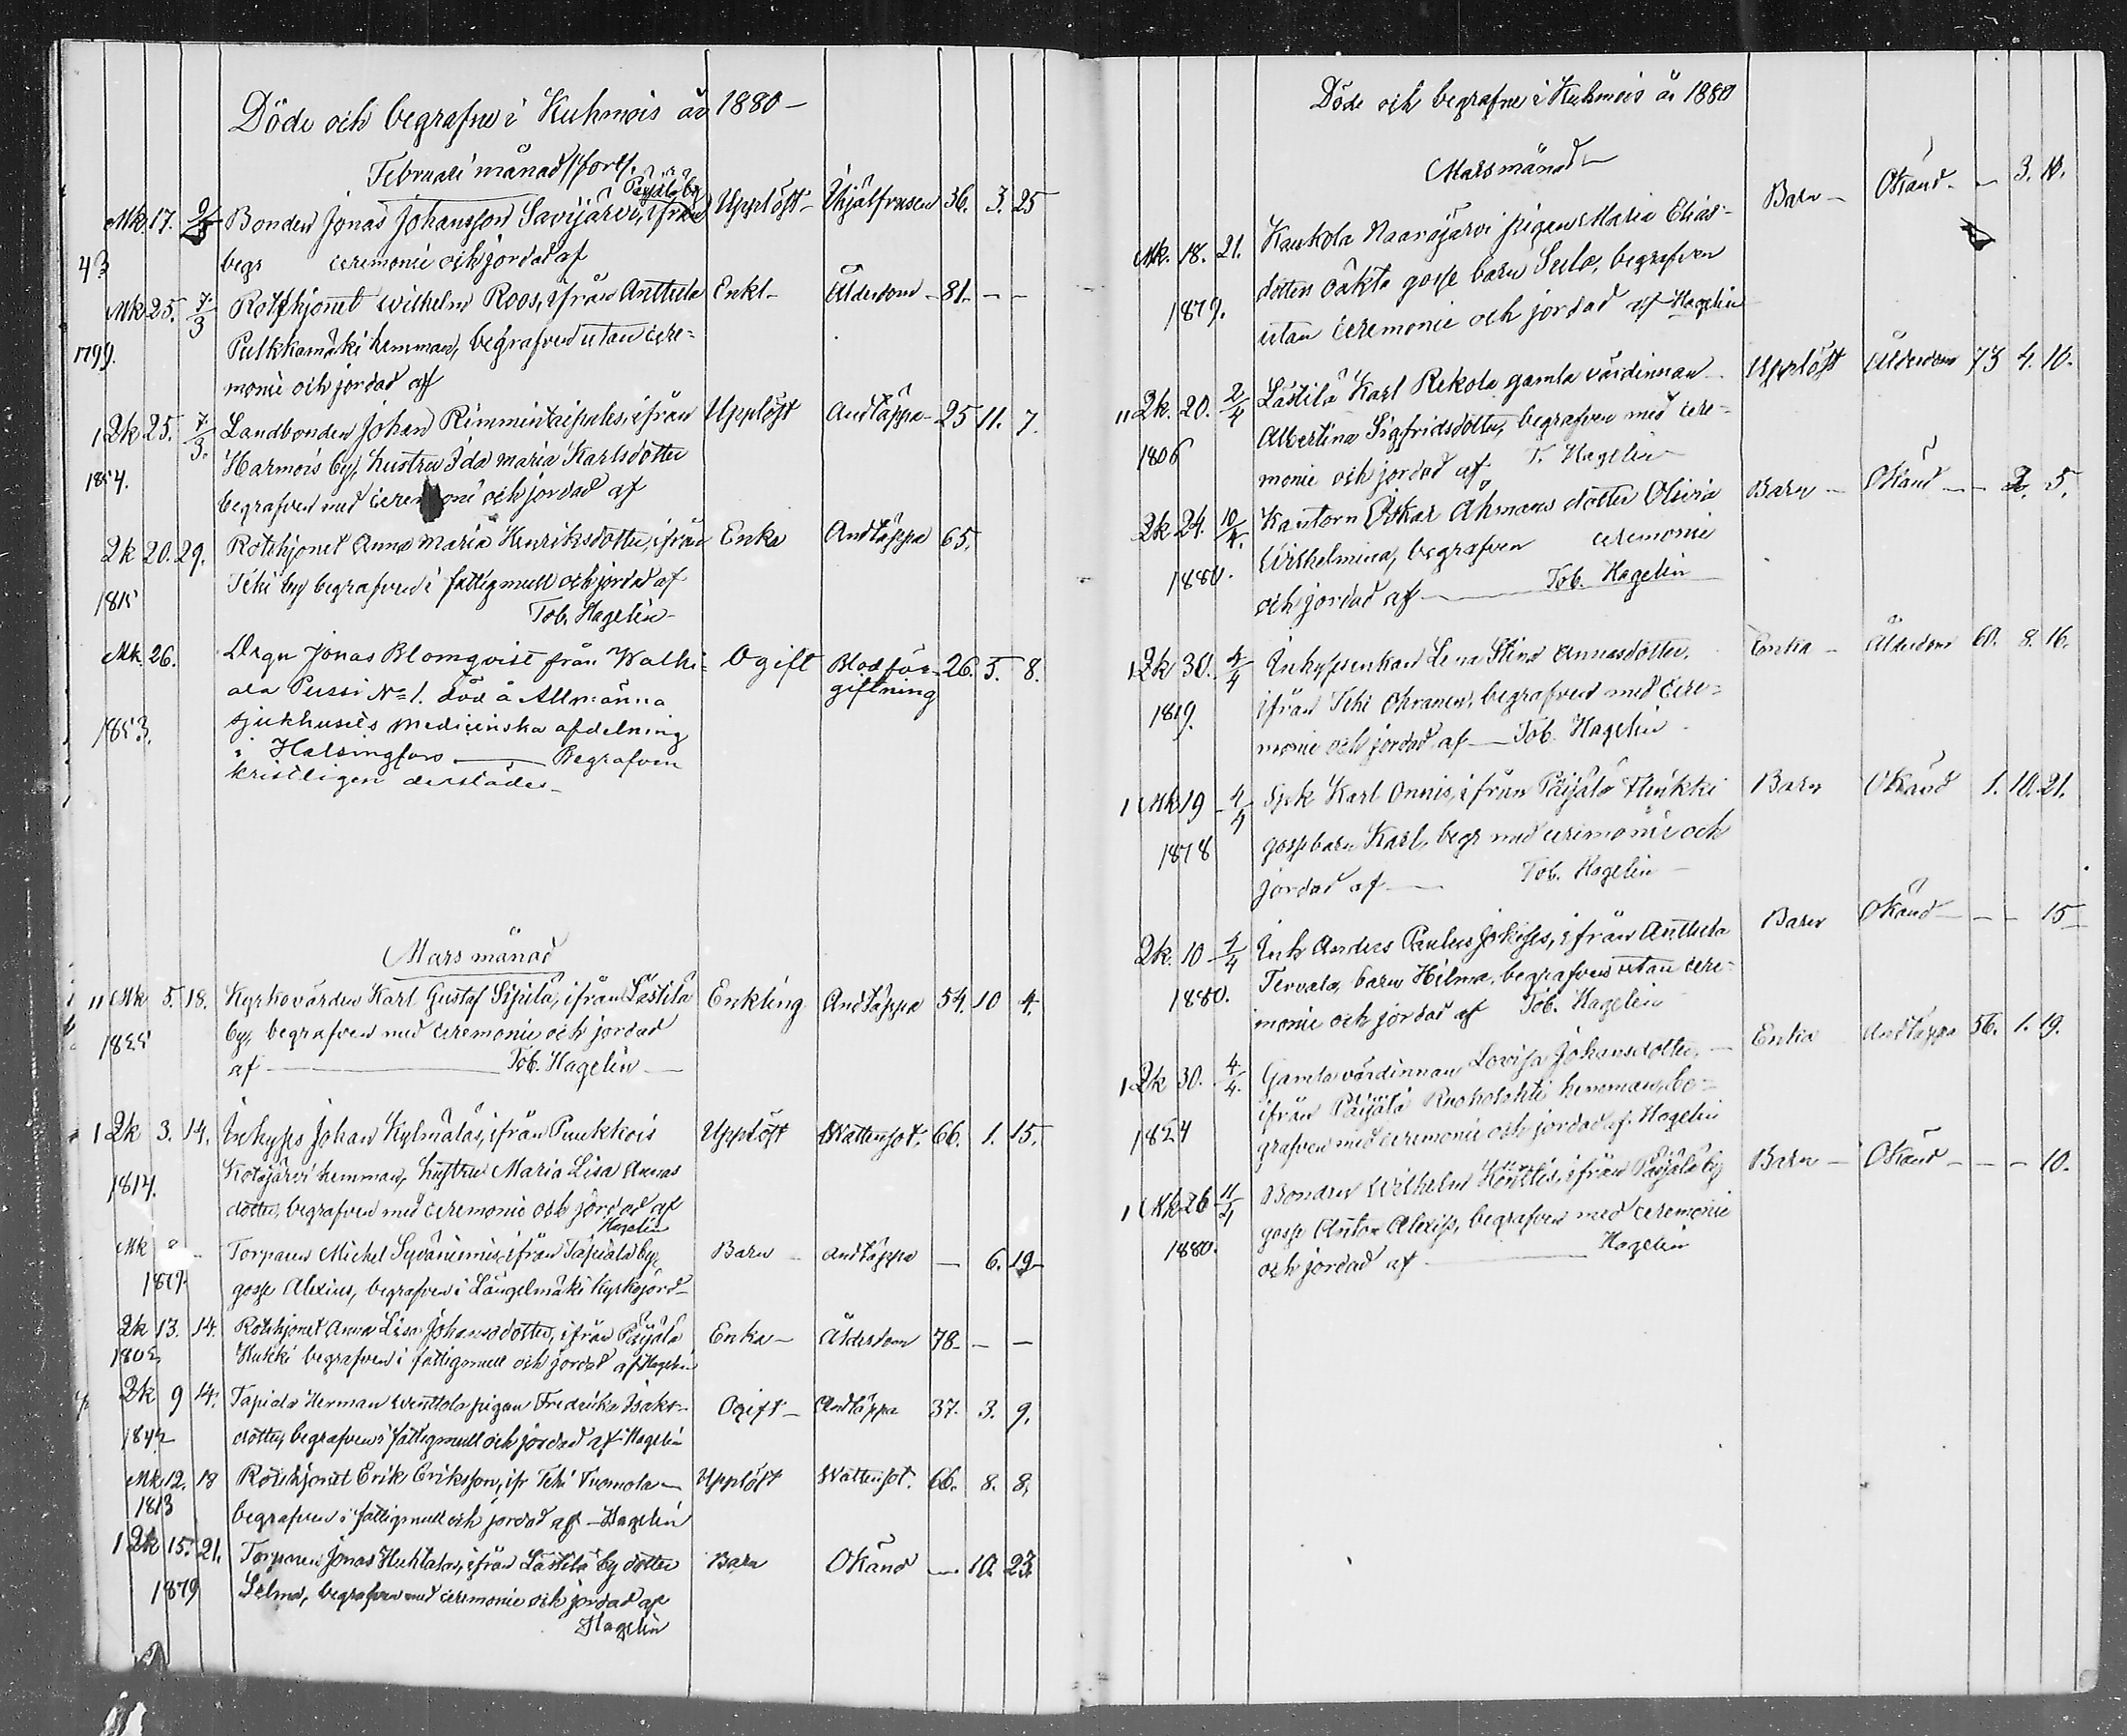 Döde och begrafne i Kuhmois år 1880 -
Februari månad /forts.
Päijälä by
Mk. 17. Bonden Jonas Johansson Savijärvi, ifrån Upplöst - Ihjälfrusen 36. 3. 25
43 begr ceremonie och jordad af
Mk 25. 7/3 Rotehjonet Wilhelm Roos, ifrån Anttula Enkl - Ålderdom - 81 - - -
1799. Pulkkamäki hemman, begrafven utan cere-
monie och jordad af
1 Qk 25. 7/3. Landbonden Johan Rimmintaipules, ifrån Upplöst Andtäppa - 25 11. 7.
1854. Harmois by, hustru Ida Maria Karlsdotter
begrafven med ceremoni och jordad af
Qk 20. 29. Rotehjonet Anna Maria Henriksdotter, ifrån Enka Andtäppa 65.
1815 Tehi by begrafven i fattigmull och jordad af
Tob. Hagelin -
Mk. 26. Dräng Jonas Blomqvist från Walki- Ogift Blodför- 26. 5. 8.
ala Pussi No 1. död å Allmänna giftning
1853. sjukhusets medicinska afdelning
i Helsingfors — Begrafven
kristligen derstädes -
Mars månad
11 Mk 5. 18. Kyrkovärden Karl Gustaf Sipilä, ifrån Lästilä Enkling Andtäppa 54. 10 4.
1825 by, begrafven med ceremonie och jordad
af — Tob. Hagelin —
1 Qk 3. 14. Inhyses Johan Kylmäläs, ifrån Puukkois Upplöst Wattensot. 66. 1. 15.
1814. Kotajärvi hemman, hustru Maria Lisa Annas
dotter, begrafven med ceremonie och jordad af
Hagelin
Mk 8 - Torparen Michel Syväniemis, ifrån Tapiala by, Barn - Andtäppa — 6. 19
1879 gosse Alexius, begrafven i Längelmäki Kyrkojord -
Qk 13. 14. Rotehjonet Anna Lisa Johansdotter, ifrån Päijälä Enka - Ålderdom 78 - - —
1802 Hukki begrafven i fattigmull och jordad af Hagelin
Qk 9 14. Tapiala Herman Wenttola pigan Fredrika Isaks- Ogift - Andtäppa 37. 3. 9.
1842 dotter, begrafven i fattigmull och jordad af Hagelin
Mk 12. 18 Rotehjonet Erik Eriksson, ifr Tehi Tuomola — Upplöst Wattensot. 66. 8. 8.
1813 begrafven i fattigmull och jordad af - Hagelin
1 Qk 15. 21. Torparen Jonas Huhtalas, ifrån Lästilä by dotter Barn Okänd — 10. 23.
1879 Selma, begrafven med ceremonie och jordad af
Hagelin
Döde och begrafne i Kuhmois år 1880
Mars månad —
Mk. 18. 21. Kaukola Naarajärvi pigan Maria Elias- Barn - Okänd - - 3. 11.
dotters oäkta gosse barn Sulo, begrafven
1879. utan ceremonie och jordad af Hagelin
11 Qk. 20. 2/4 Lästilä Karl Rekola gamla värdinnan Upplöst Ålderdom 73 4. 10.
1806 Albertina Sigfridsdotter, begrafven med cere-
monie och jordad af T. Hagelin
Qk 24. 10/4. Kantorn Oskar Åhmans dotter Olivia Barn - Okänd - - 2. 5.
1880. Wilhelmina, begrafven ceremonie
och jordad af — Tob. Hagelin
1 Qk 30. 4/4 Inhysesenkan Lena Stina Annasdotter, Enka - Ålderdom 60. 8. 16.
1819. ifrån Tehi Ohranen, begrafven med cere-
monie och jordad af — Tob. Hagelin
1 Mk 19 4/4 Spk Karl Onnis, ifrån Päijälä Hukki Barn Okänd 1. 10. 21.
1878 gossebarn Karl, begr med ceremonie och
jordad af — Tob. Hagelin -
Qk. 10 4/4 Inh Anders Paulus ifrån Anttula Barn Okänd - - - 15
1880. Tervala, barn Hilma, begrafven utan cere-
monie och jordad af Tob. Hagelin
1 Qk 30. 4/4. Gamla värdinnan Lovisa Johansdotter, — Enka Andtäppa 56. 1. 19.
ifrån Päijälä Ruokolahti hemman, be-
1824 grafven med ceremonie och jordad af Hagelin
1 Mk 26 11/4 Bonden Wilhelm ifrån Päijälä by Barn - Okänd - - - 10.
gosse Anton Alexis, begrafven med ceremonie
1880. och jordad af — Hagelin